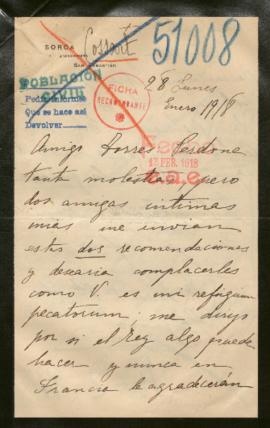 SOROA
51008
POBLACION
CIVIL
Pedir informes
Que se hace así
Devolver
FICHA
RECOMENDANTE
28 Lunes
Enero 1918
FEB. 1918
Amigo Torres Perdone
tanta molestia, pero
dos amigas intimas
mias me envian
estas dos recomendaciones
y desearia complacerles
como V. es mi refugium
pecatorum; me dirijo
por si el Rey algo puede
hacer y nunca en
Francia le agradecerán